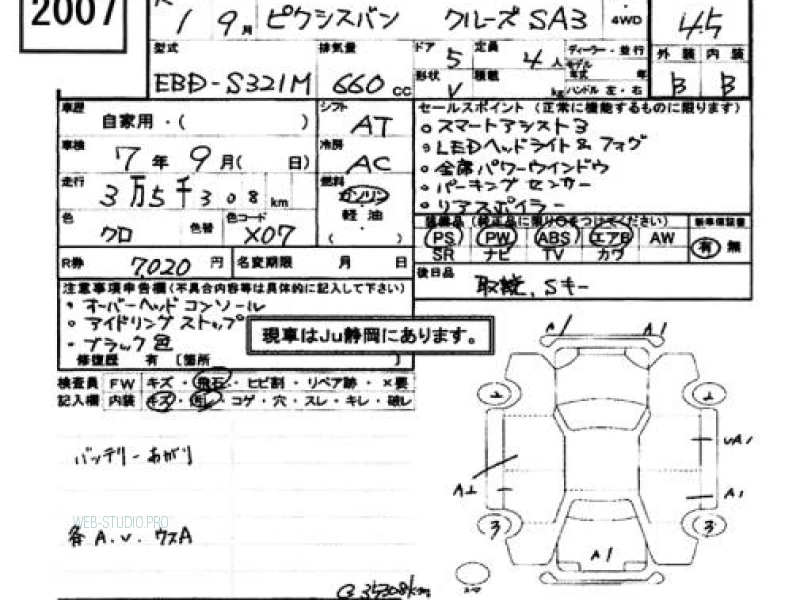 2007
1 9月 ピクシスバン クルーズSA3 4WD 4.5
型式 EBD-S321M 排気量 660 CC ドア 5 定員 4人 ディーラー・並行
形状 V 積載 kg モデル年式 年 ハンドル 左・右
外装 B 内装 B
車歴 自家用・( )
シフト AT
車検 7年9月( 日)
冷房 AC
走行 3万5千308km
燃料 ガソリン 軽油 ( ・ )
色 クロ 色替 色コード X07
R券 7,020円 名変期限 月 日
セールスポイント (正常に機能するものに限ります)
・スマートアシスト3
・LEDヘッドライト&フォグ
・全席パワーウインドウ
・パーキングセンサー
・リアスポイラー
装備品 (純正品に限り○をつけてください) 新車保証書
PS PW ABS エアB AW 有 無
SR ナビ TV カワ
後日品 取説、Sキー
注意事項申告欄(不具合内容等は具体的に記入して下さい)
・オーバーヘッドコンソール
・アイドリングストップ
・ブラック色
修復歴 有 〔箇所 〕
現車はJu静岡にあります。
検査員 FW キズ・飛石・ヒビ割・リペア跡・×要
記入欄 内装 キズ・汚レ・コゲ・穴・スレ・キレ・破レ
バッテリーあがり
WEB-STUDIO.PRO
各A.U.ウスA
35308km
A1 A1
2 2
UA1
A1 A1
3 3
A1